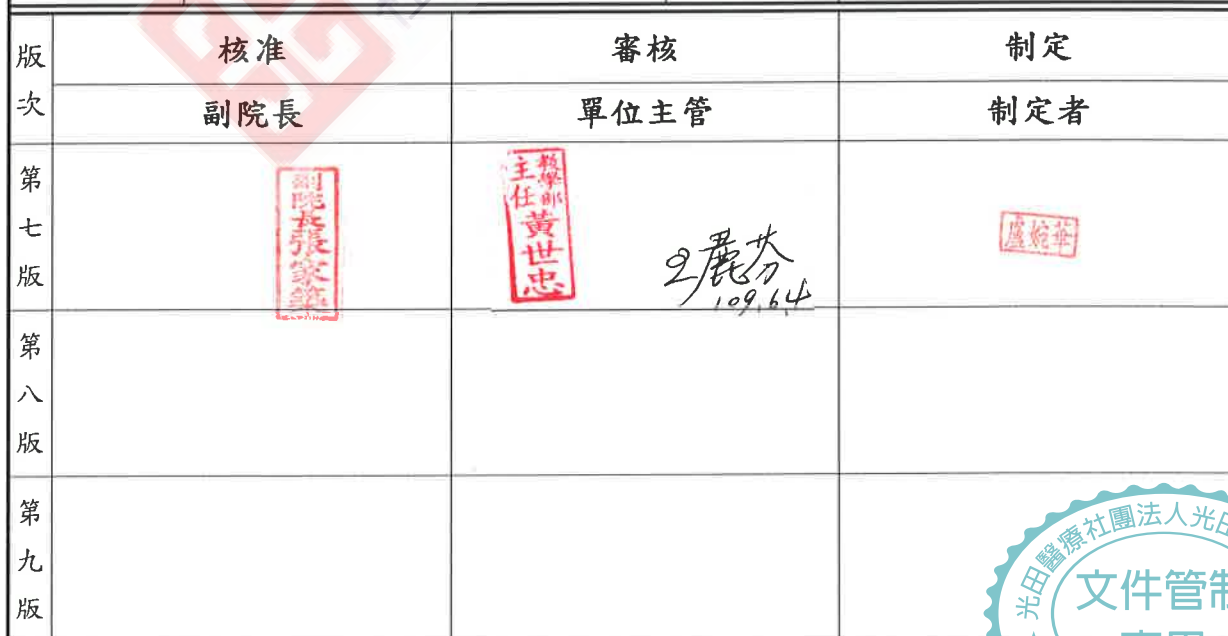 版次
核准
審核
制定
副院長
單位主管
制定者
第七版
副院長張家築
教學部
主任
黃世忠
王麗芬
109.6.4
盧婉華
第八版
第九版
光田醫療社團法人光田
文件管制